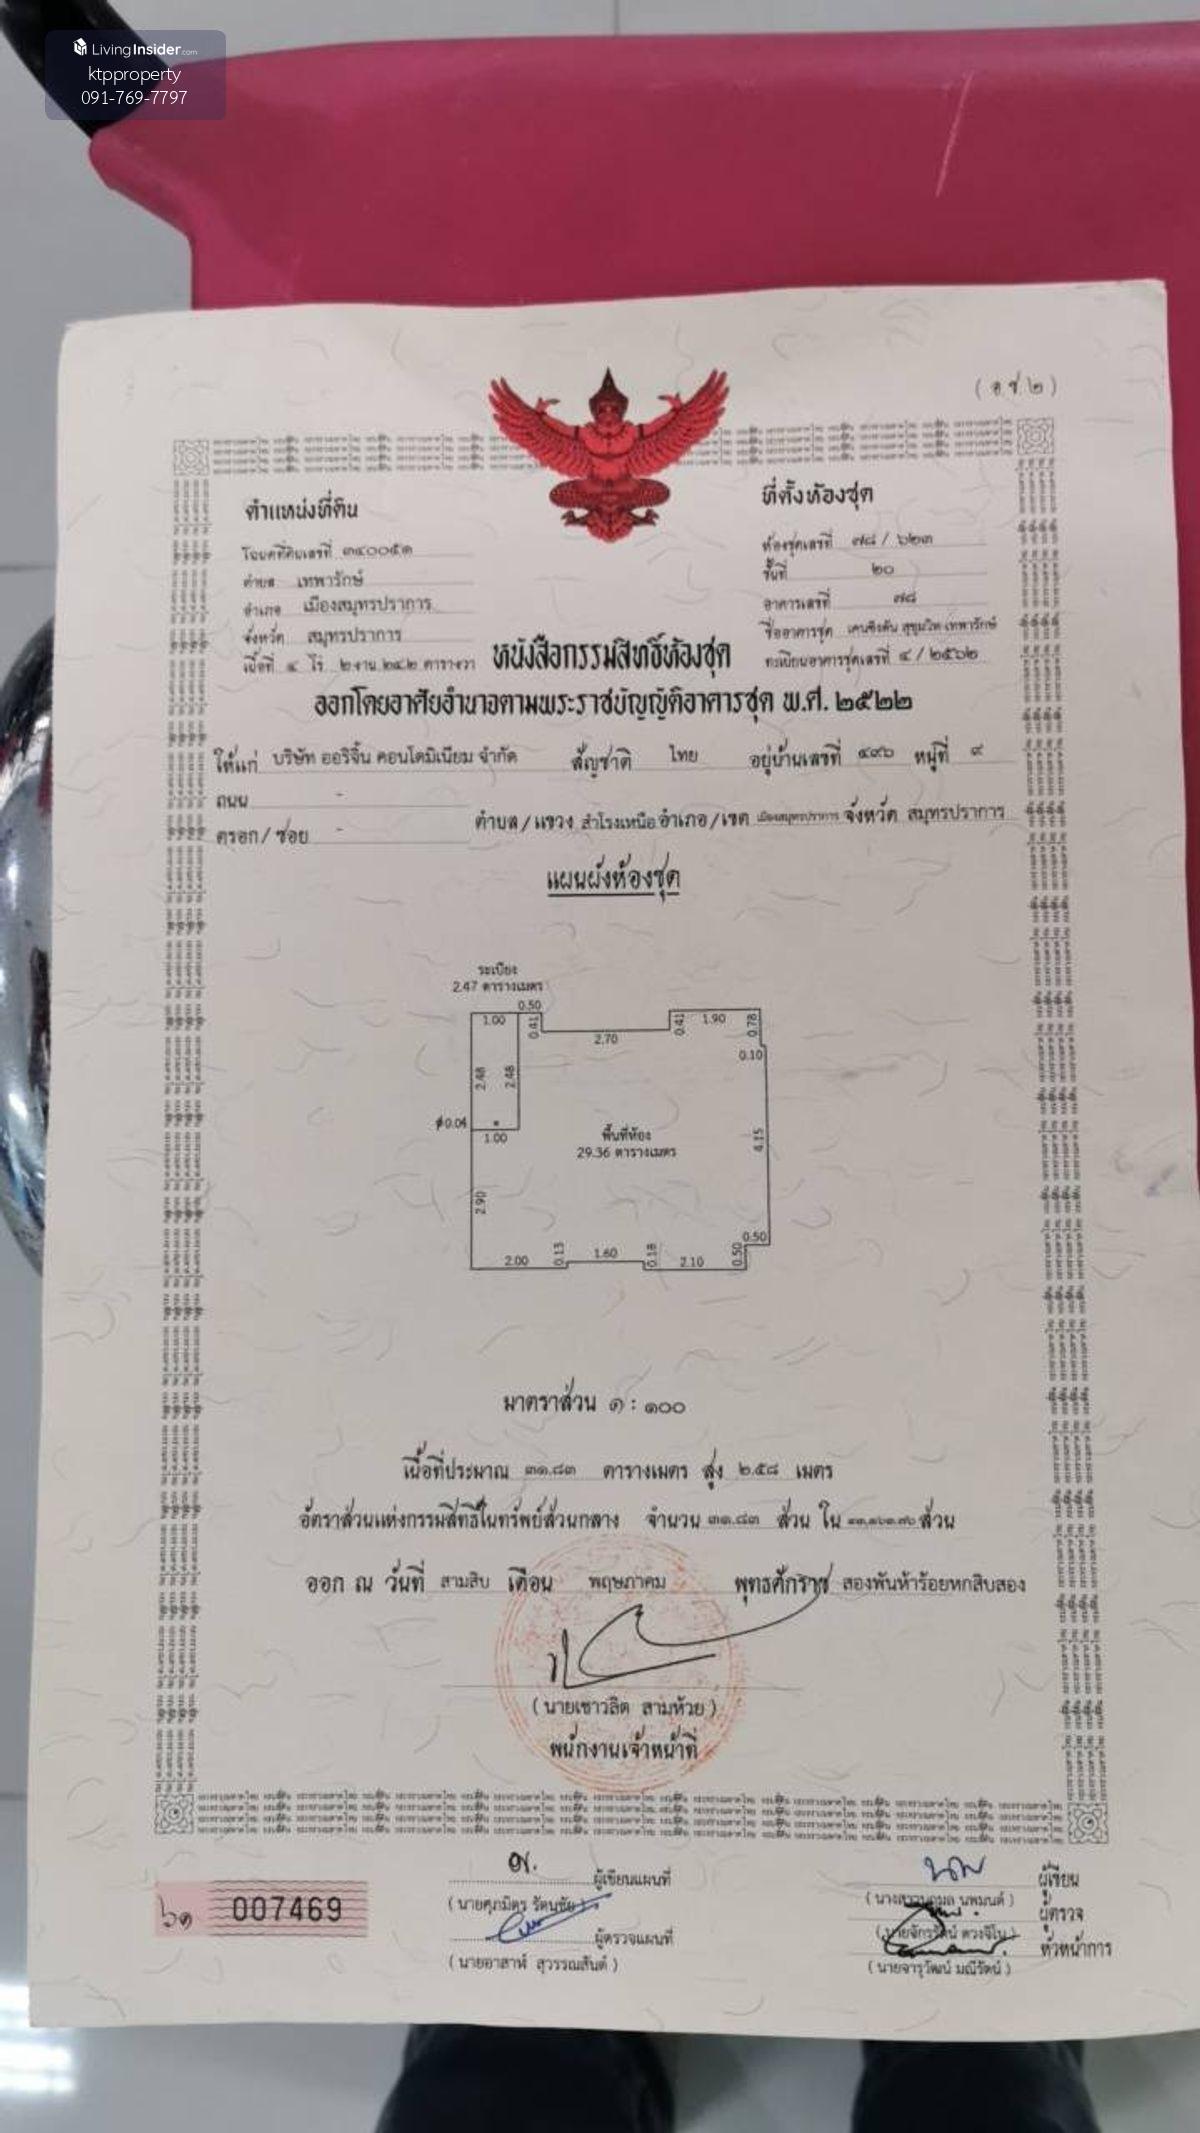 LivingInsider.com
ktpproperty
091-769-7797
(อ.ช.๒)
ตำแหน่งที่ดิน
โฉนดที่ดินเลขที่ ๓๔๐๐๕๑
ตำบล เทพารักษ์
อำเภอ เมืองสมุทรปราการ
จังหวัด สมุทรปราการ
เนื้อที่ ๔ ไร่ ๒ งาน ๒๔.๒ ตารางวา
ที่ตั้งห้องชุด
ห้องชุดเลขที่ ๗๘ / ๖๒๓
ชั้นที่ ๒๐
อาคารเลขที่ ๗๘
ชื่ออาคารชุด เคนซิงตัน สุขุมวิท-เทพารักษ์
ทะเบียนอาคารชุดเลขที่ ๔ / ๒๕๖๒
หนังสือกรรมสิทธิ์ห้องชุด
ออกโดยอาศัยอำนาจตามพระราชบัญญัติอาคารชุด พ.ศ. ๒๕๒๒
ให้แก่ บริษัท ออริจิ้น คอนโดมิเนียม จำกัด สัญชาติ ไทย อยู่บ้านเลขที่ ๔๙๖ หมู่ที่ ๙
ถนน -
ตรอก/ซอย - ตำบล/แขวง สำโรงเหนือ อำเภอ/เขต เมืองสมุทรปราการ จังหวัด สมุทรปราการ
แผนผังห้องชุด
ระเบียง
2.47 ตารางเมตร
0.50
1.00
0.41
2.70
0.41
1.90
0.78
0.10
2.48
2.48
0.04
1.00
พื้นที่ห้อง
29.36 ตารางเมตร
4.15
2.90
2.00
0.13
1.60
0.18
2.10
0.50
0.50
มาตราส่วน ๑ : ๑๐๐
เนื้อที่ประมาณ ๓๑.๘๓ ตารางเมตร สูง ๒.๕๘ เมตร
อัตราส่วนแห่งกรรมสิทธิ์ในทรัพย์ส่วนกลาง จำนวน ๓๑.๘๓ ส่วน ใน ส่วน
ออก ณ วันที่ สามสิบ เดือน พฤษภาคม พุทธศักราช สองพันห้าร้อยหกสิบสอง
(นายเชาวลิต สามห้วย)
พนักงานเจ้าหน้าที่
๖๑ 007469
ผู้เขียนแผนที่
(นายศุภมิตร รัตนชัย)
ผู้ตรวจแผนที่
(นายอาสาห์ สุวรรณสันต์)
ผู้เขียน
(นางสาวนฤมล นพมนต์)
ผู้ตรวจ
(นายจักรรัตน์ ดวงจิโน)
หัวหน้าการ
(นายจารุวัฒน์ มณีรัตน์)